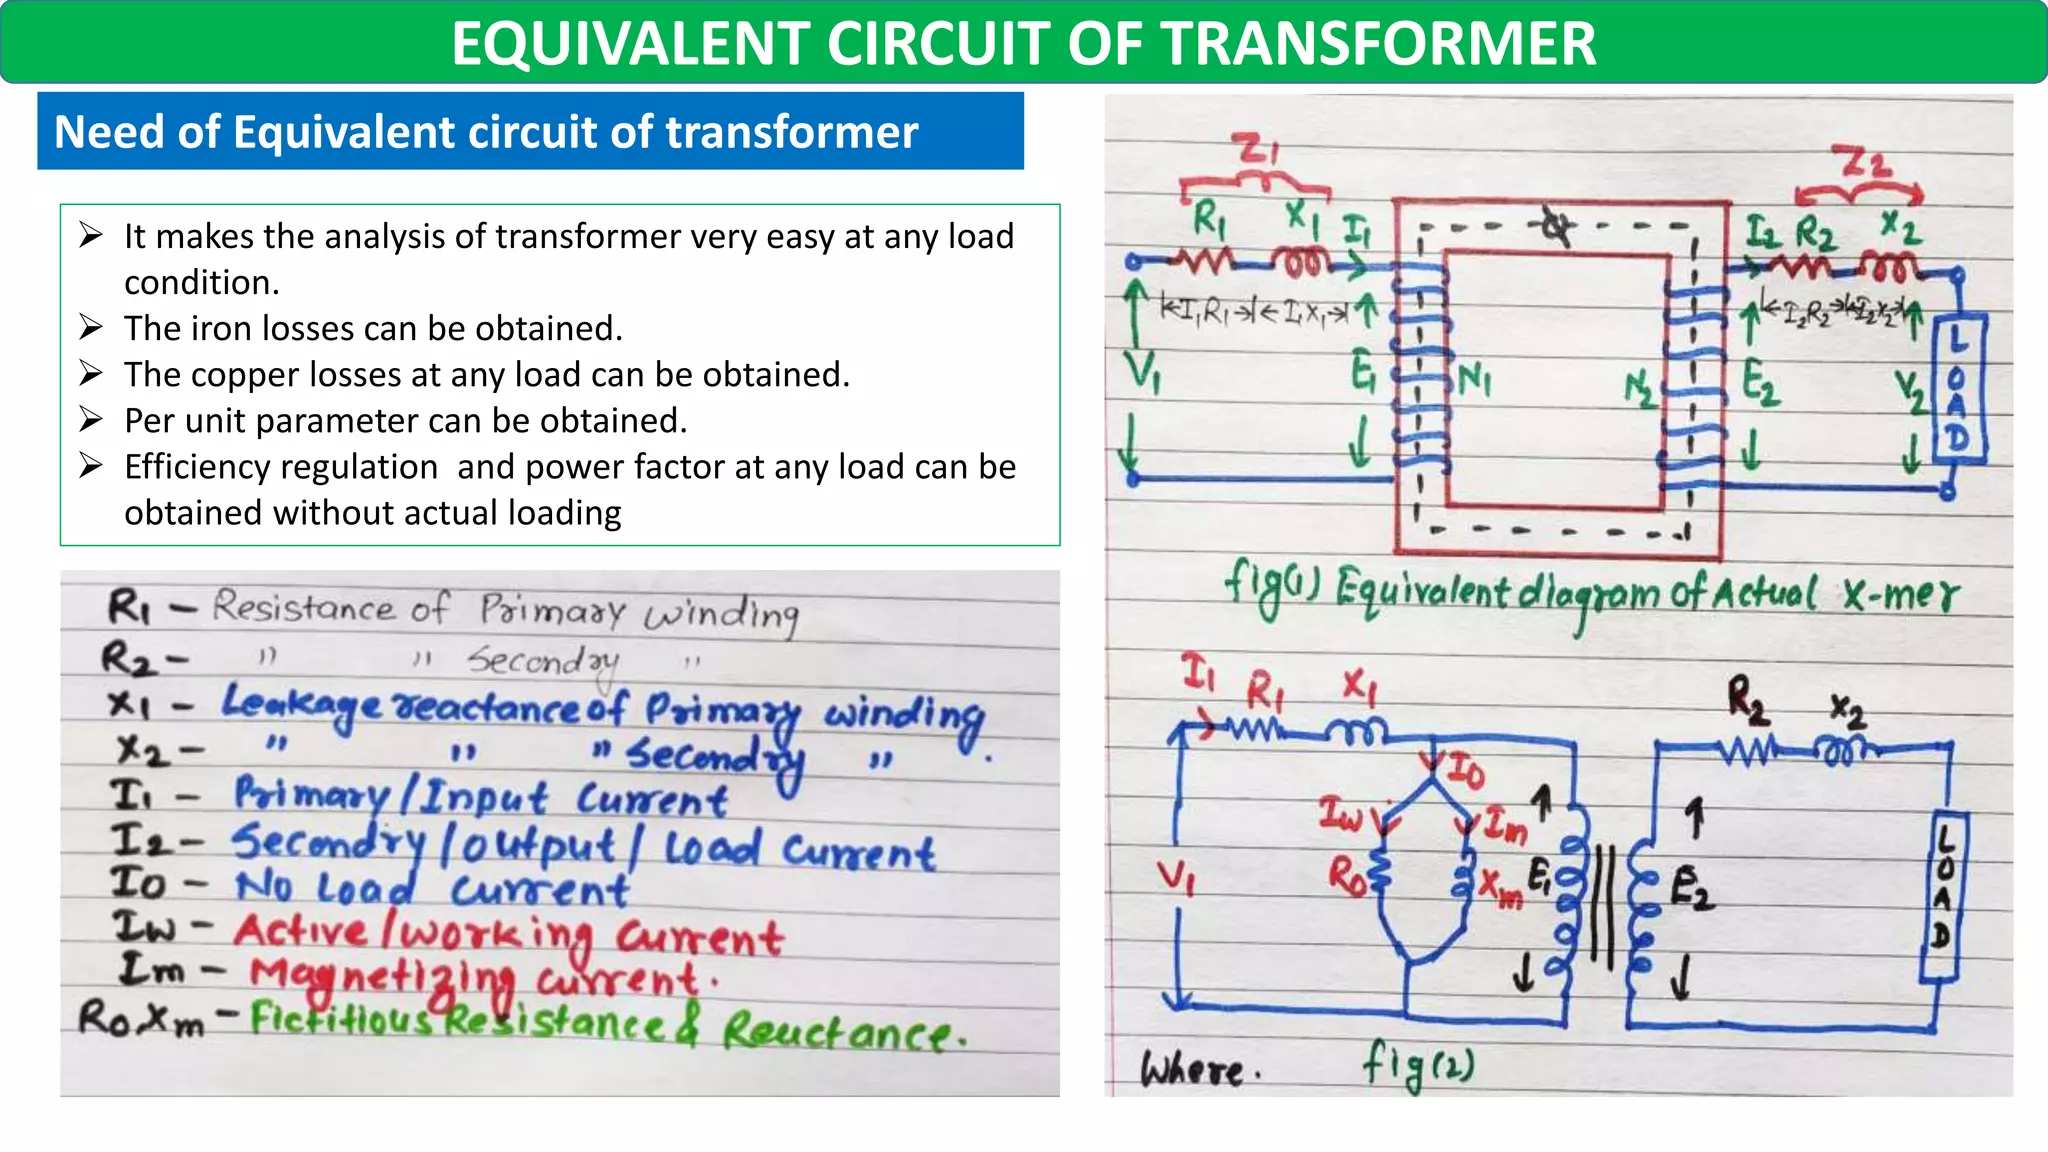 EQUIVALENT CIRCUIT OF TRANSFORMER
Need of Equivalent circuit of transformer
➢ It makes the analysis of transformer very easy at any load
condition.
➢ The iron losses can be obtained.
➢ The copper losses at any load can be obtained.
➢ Per unit parameter can be obtained.
➢ Efficiency regulation and power factor at any load can be
obtained without actual loading
R1 – Resistance of Primary winding
R2 – " " Secondry "
X1 – Leakage reactance of Primary winding
X2 – " " " Secondry " .
I1 – Primary/Input Current
I2 – Secondry/output/Load Current
I0 – No Load Current
Iw – Active/working Current
Im – Magnetizing current.
R0,Xm – Fictitious Resistance & Reuctance.
Z1 Z2
R1 X1 I1 ϕ I2 R2 X2
I1R1 I1X1 I2R2 I2X2
V1 E1 N1 N2 E2 V2 LOAD
fig(1) Equivalent diagram of Actual X-mer
I1 R1 X1 R2 X2
I0
Iw Im
V1 R0 Xm E1 E2 LOAD
Where. fig(2)